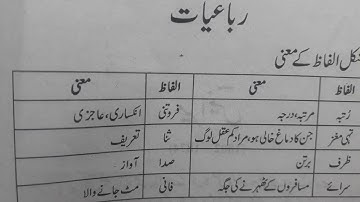 رباعیات
مشکل الفاظ کے معنی
الفاظ معنی الفاظ معنی
رُتبہ مرتبہ، درجہ فروتنی انکساری، عاجزی
تہی مغز جن کا دماغ خالی ہو، مراد کم عقل لوگ ثنا تعریف
ظرف برتن صدا آواز
سرائے مسافروں کے ٹھہرنے کی جگہ فانی مٹ جانے والا